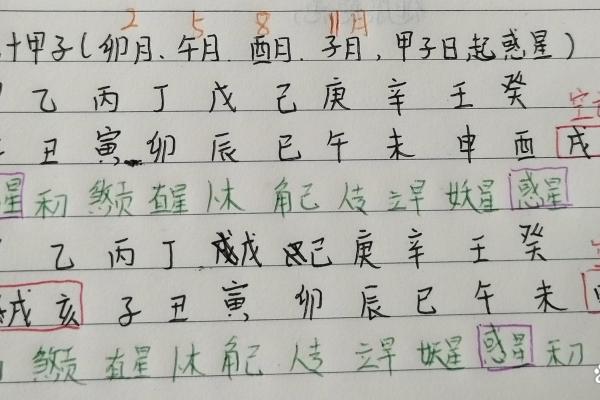 2 5 8 11月
十甲子(卯月、午月 酉月、子月,甲子日起惑星)
乙 丙 丁 戊 己 庚 辛 壬 癸 空
丑 寅 卯 辰 巳 午 未 申 酉 戌
星 禾刀 煞贡 直星 卜木 角己 人专 立早 妖星 惑星
乙 丙 丁 戊 己 庚 辛 壬 癸
戌 亥 子 丑 寅 卯 辰 巳 午 未
煞贡 直星 卜木 角己 人专 立早 妖星 惑星 禾刀